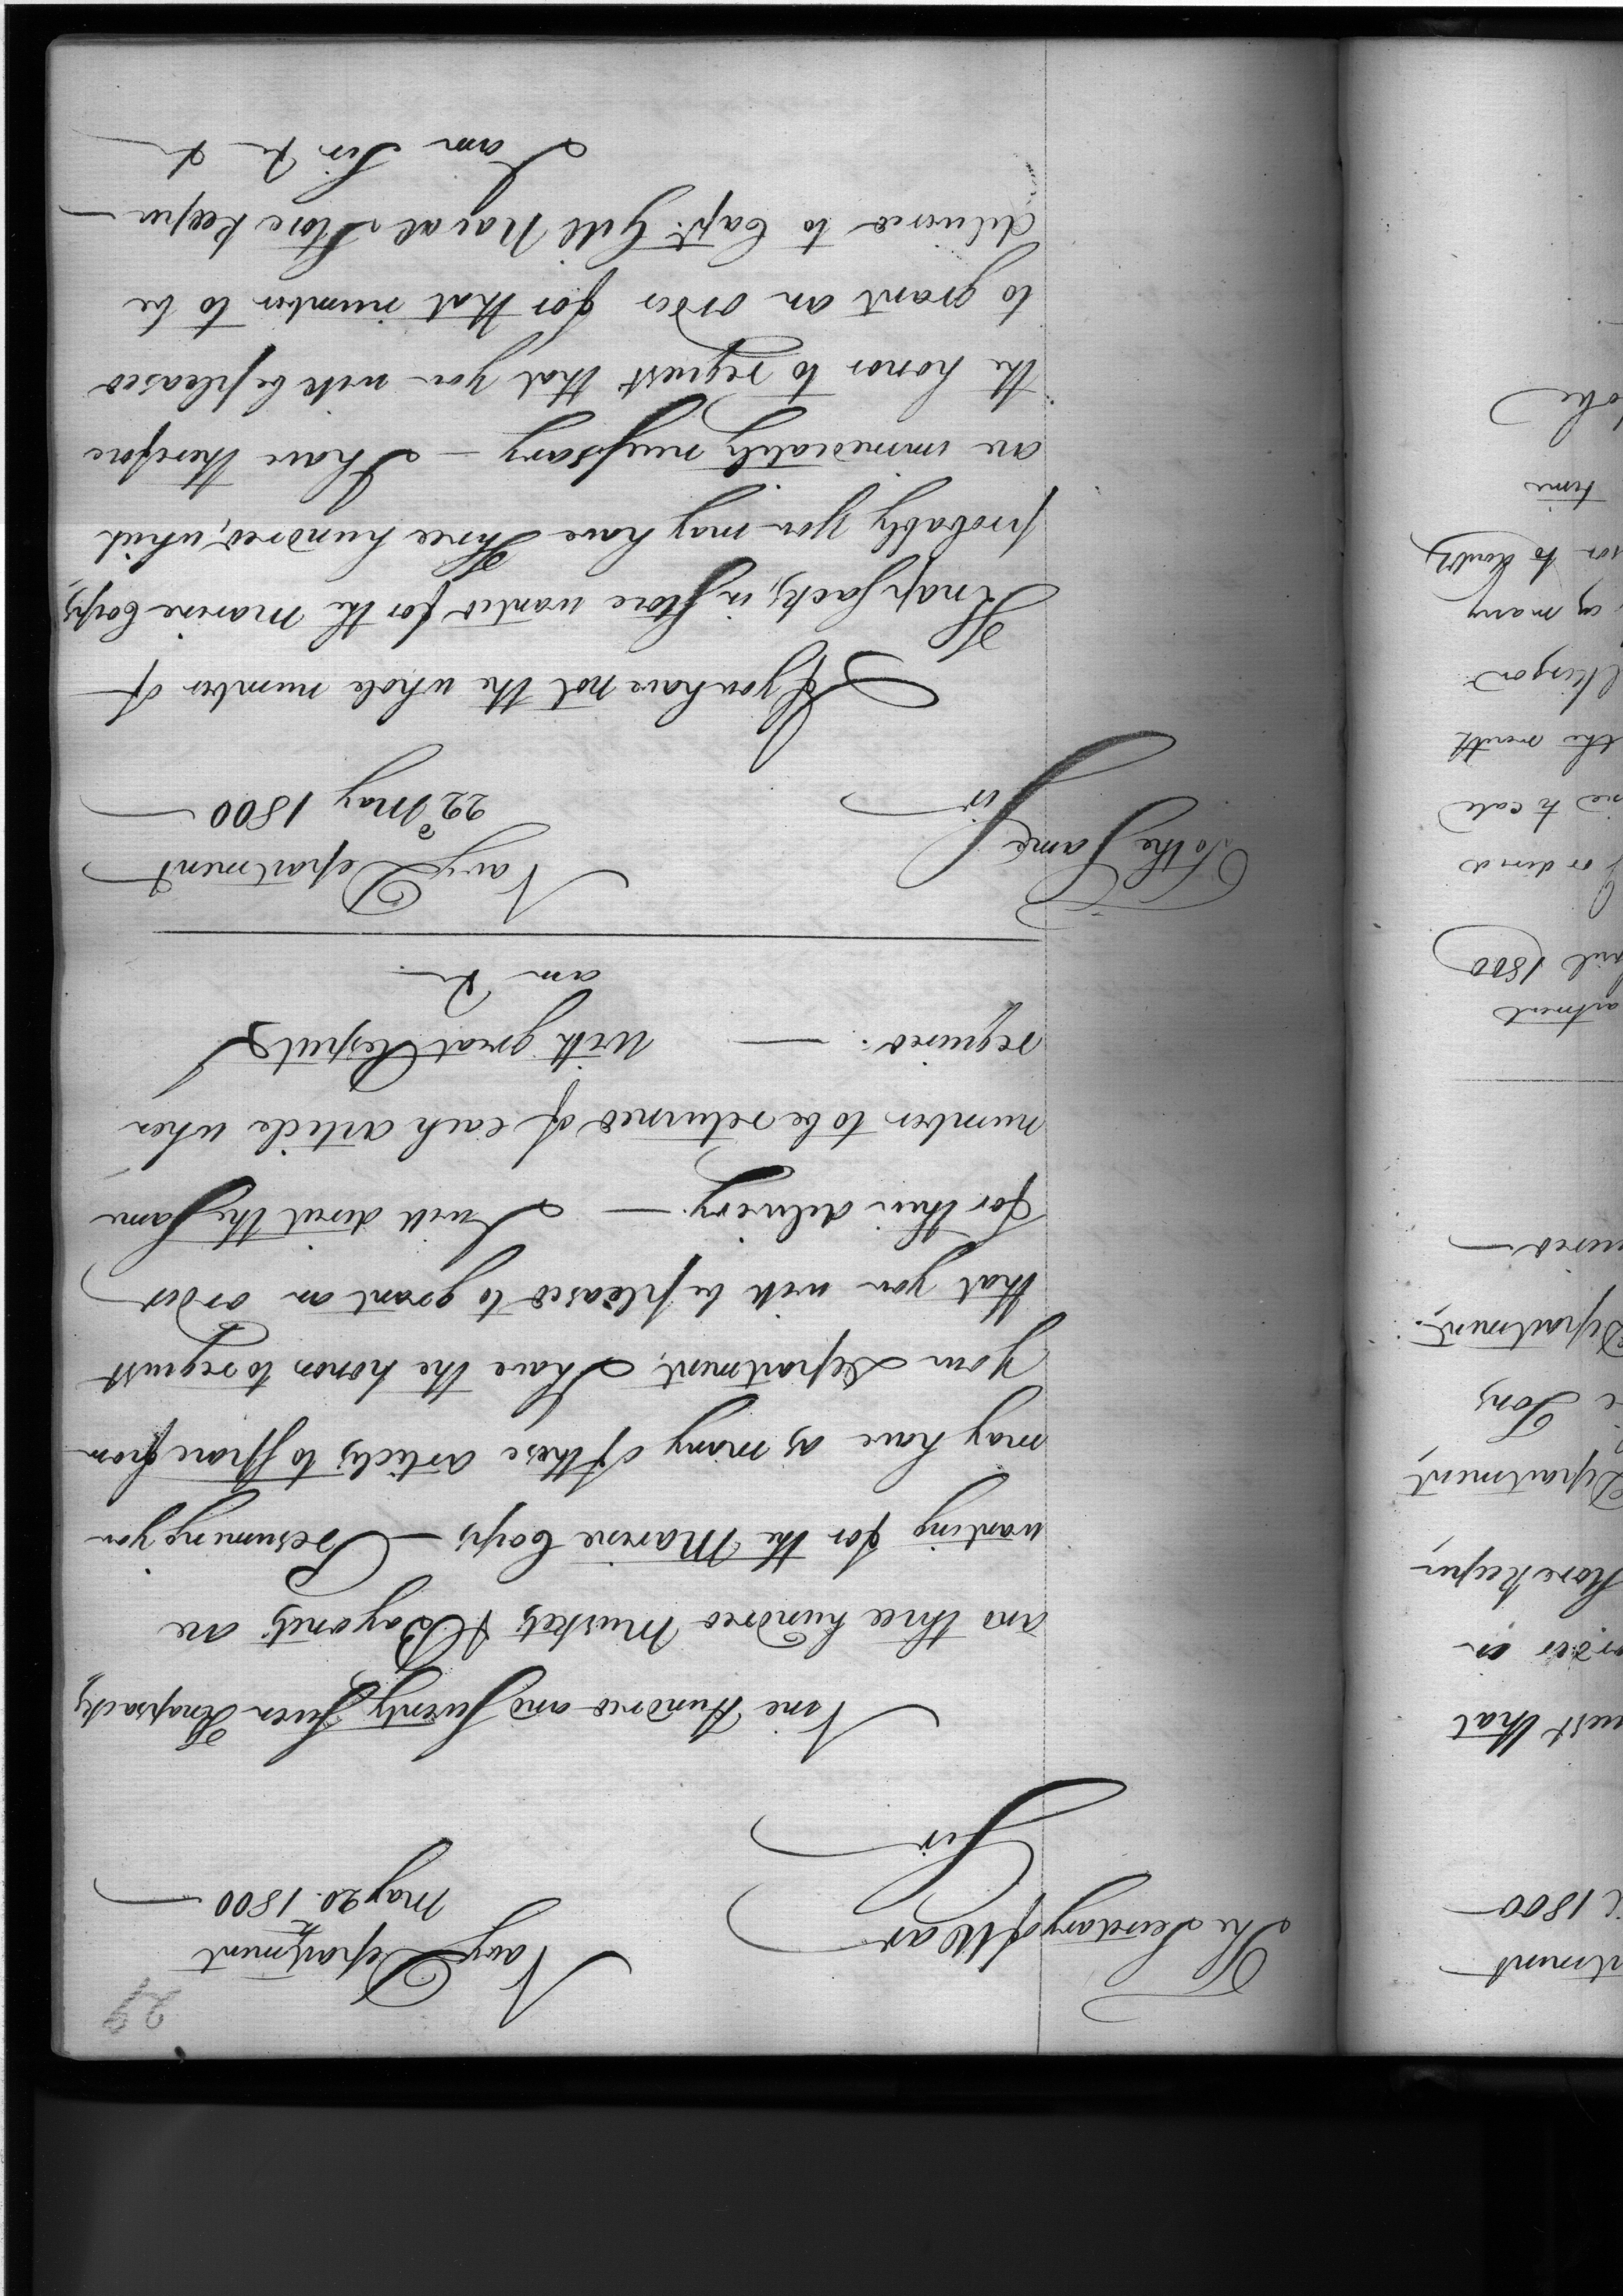 29
The Secretary of War
Navy Department
May 20th 1800
Sir
Nine Hundred and Seventy Seven Knapsacks
and three hundred Muskets & Bayonets are
wanting for the Marine Corps — Presuming you
may have as many of these articles to spare from
Your Department, I have the honor to request
that you will be pleased to grant an order
for their delivery. — I will direct the same
number to be returned of each article when
required. — With great Respect I
am &c.
To the Same
Navy Department
22d May 1800
Sir
If you have not the whole number of
Knapsacks, in store wanted for the Marine Corps,
probably you may have Three hundred, which
are immediately necessary — I have therefore
the honor to request that you will be pleased
to grant an order for that number to be
delivered to Capt. Gill Naval Store Keeper —
I am Sir &c &c
1800
uest that
Store Keeper
Department
Tons
Department,
1800
the month
as many
time